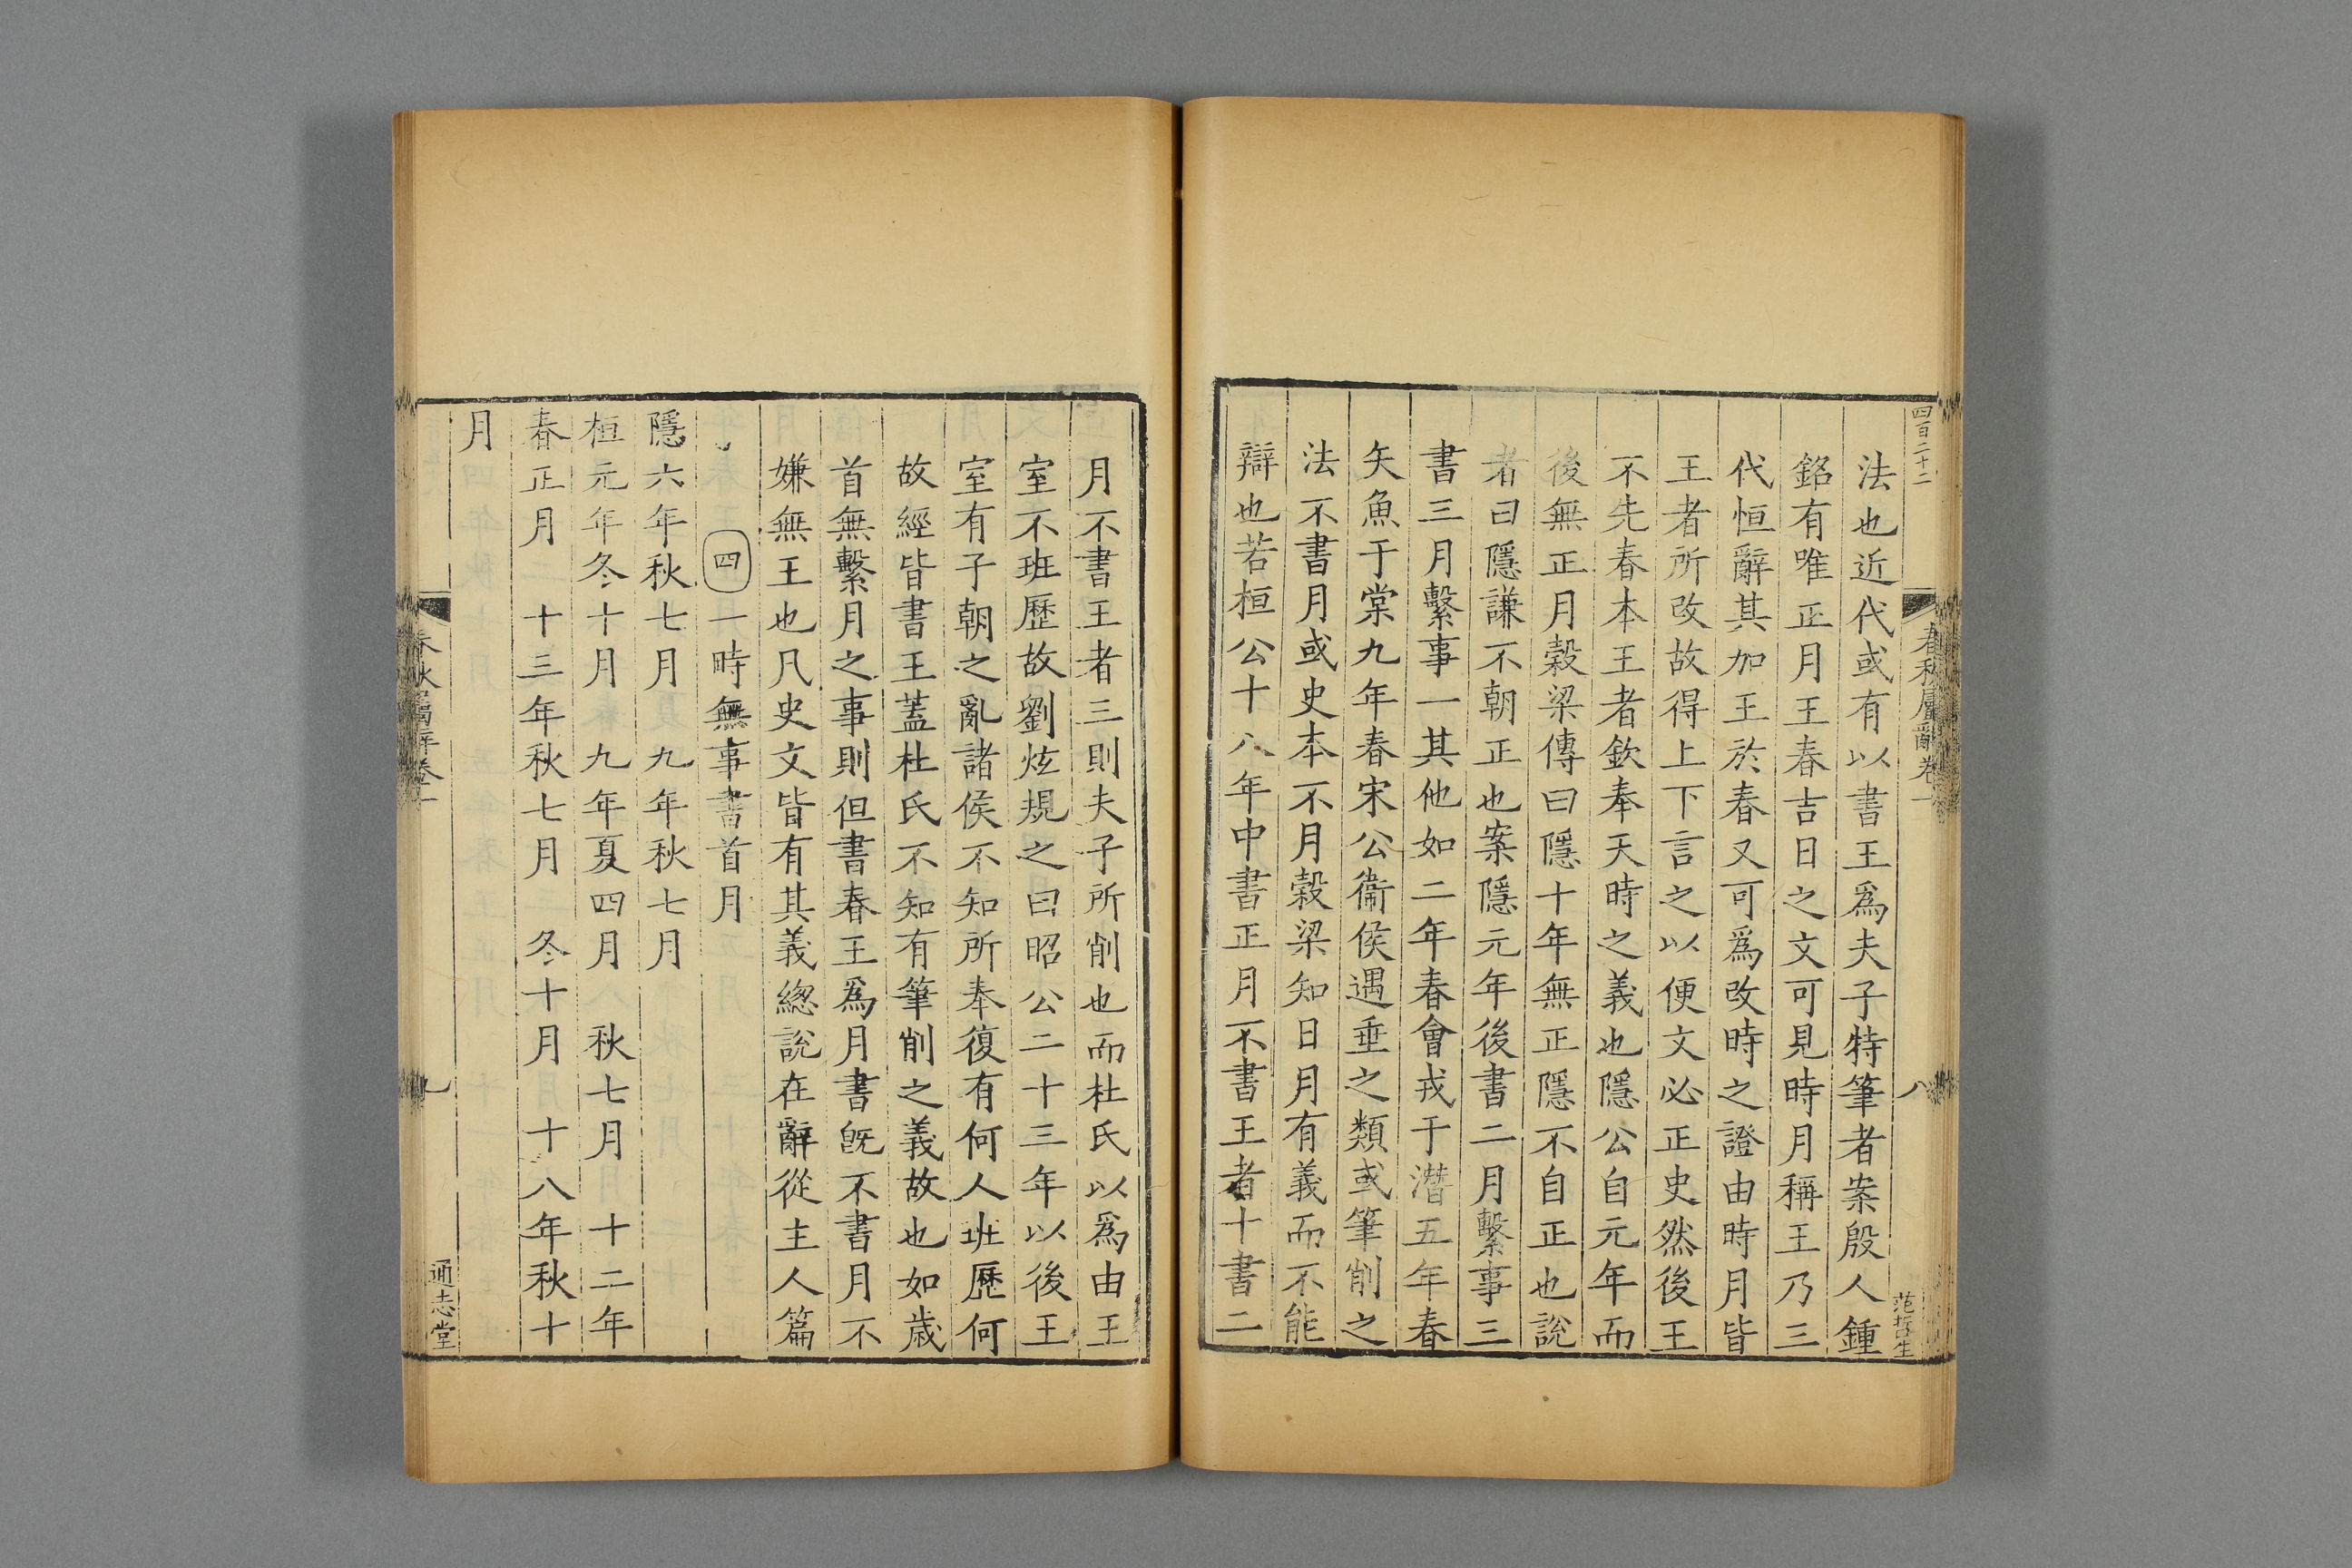 四百二十二
春秋屬辭卷一
八
范哲生
法也近代或有以書王爲夫子特筆者案殷人鍾
銘有唯正月王春吉日之文可見時月稱王乃三
代恒辭其加王於春又可爲改時之證由時月皆
王者所改故得上下言之以便文必正史然後王
不先春本王者欽奉天時之義也隱公自元年而
後無正月穀梁傳曰隱十年無正隱不自正也說
者曰隱謙不朝正也案隱元年後書二月繫事三
書三月繫事一其他如二年春會戎于潛五年春
矢魚于棠九年春宋公衞侯遇垂之類或筆削之
法不書月或史本不月榖梁知日月有義而不能
辯也若桓公十八年中書正月不書王者十書二
月不書王者三則夫子所削也而杜氏以爲由王
室不班歷故劉炫規之曰昭公二十三年以後王
室有子朝之亂諸侯不知所奉復有何人班歷何
故經皆書王蓋杜氏不知有筆削之義故也如歲
首無繫月之事則但書春王爲月書旣不書月不
嫌無王也凡史文皆有其義緫說在辭從主人篇
四 一時無事書首月
隱六年秋七月 九年秋七月
桓元年冬十月 九年夏四月 秋七月 十二年
春正月 十三年秋七月 冬十月 十八年秋十
月
春秋屬辭卷一
九
通志堂